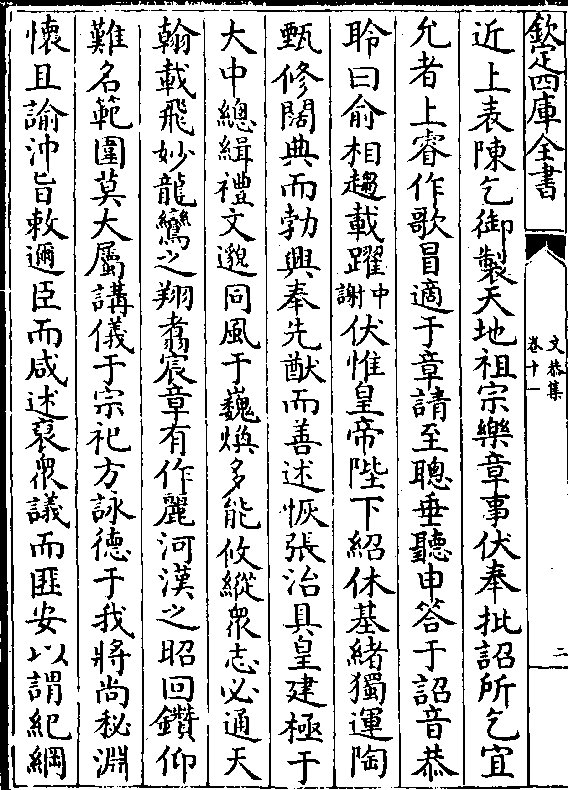 欽定四庫全書
文恭集
卷十一
二
近上表陳乞御製天地祖宗樂章事伏奉批詔所乞宜
允者上睿作歌冒適于章請至聰垂聽申答于詔音恭
聆曰俞相趨載躍中謝伏惟皇帝陛下紹休基緒獨運陶
甄修闊典而勃興奉先猷而善述恢張治具皇建極于
大中總緝禮文邈同風于巍煥多能攸縱衆志必通天
翰載飛妙龍鸞之翔翥宸章有作麗河漢之昭回鑽仰
難名範圍莫大屬講儀于宗祀方詠德于我將尚秘淵
懷且諭沖旨敕邇臣而咸述裒衆議而匪安以謂紀綱